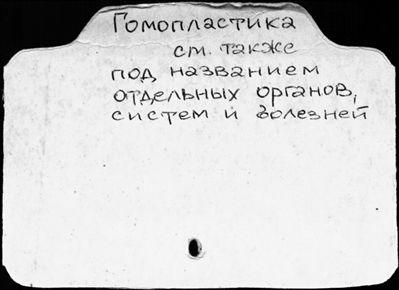 Гомопластика
см. также
под названием
отдельных органов,
систем и болезней